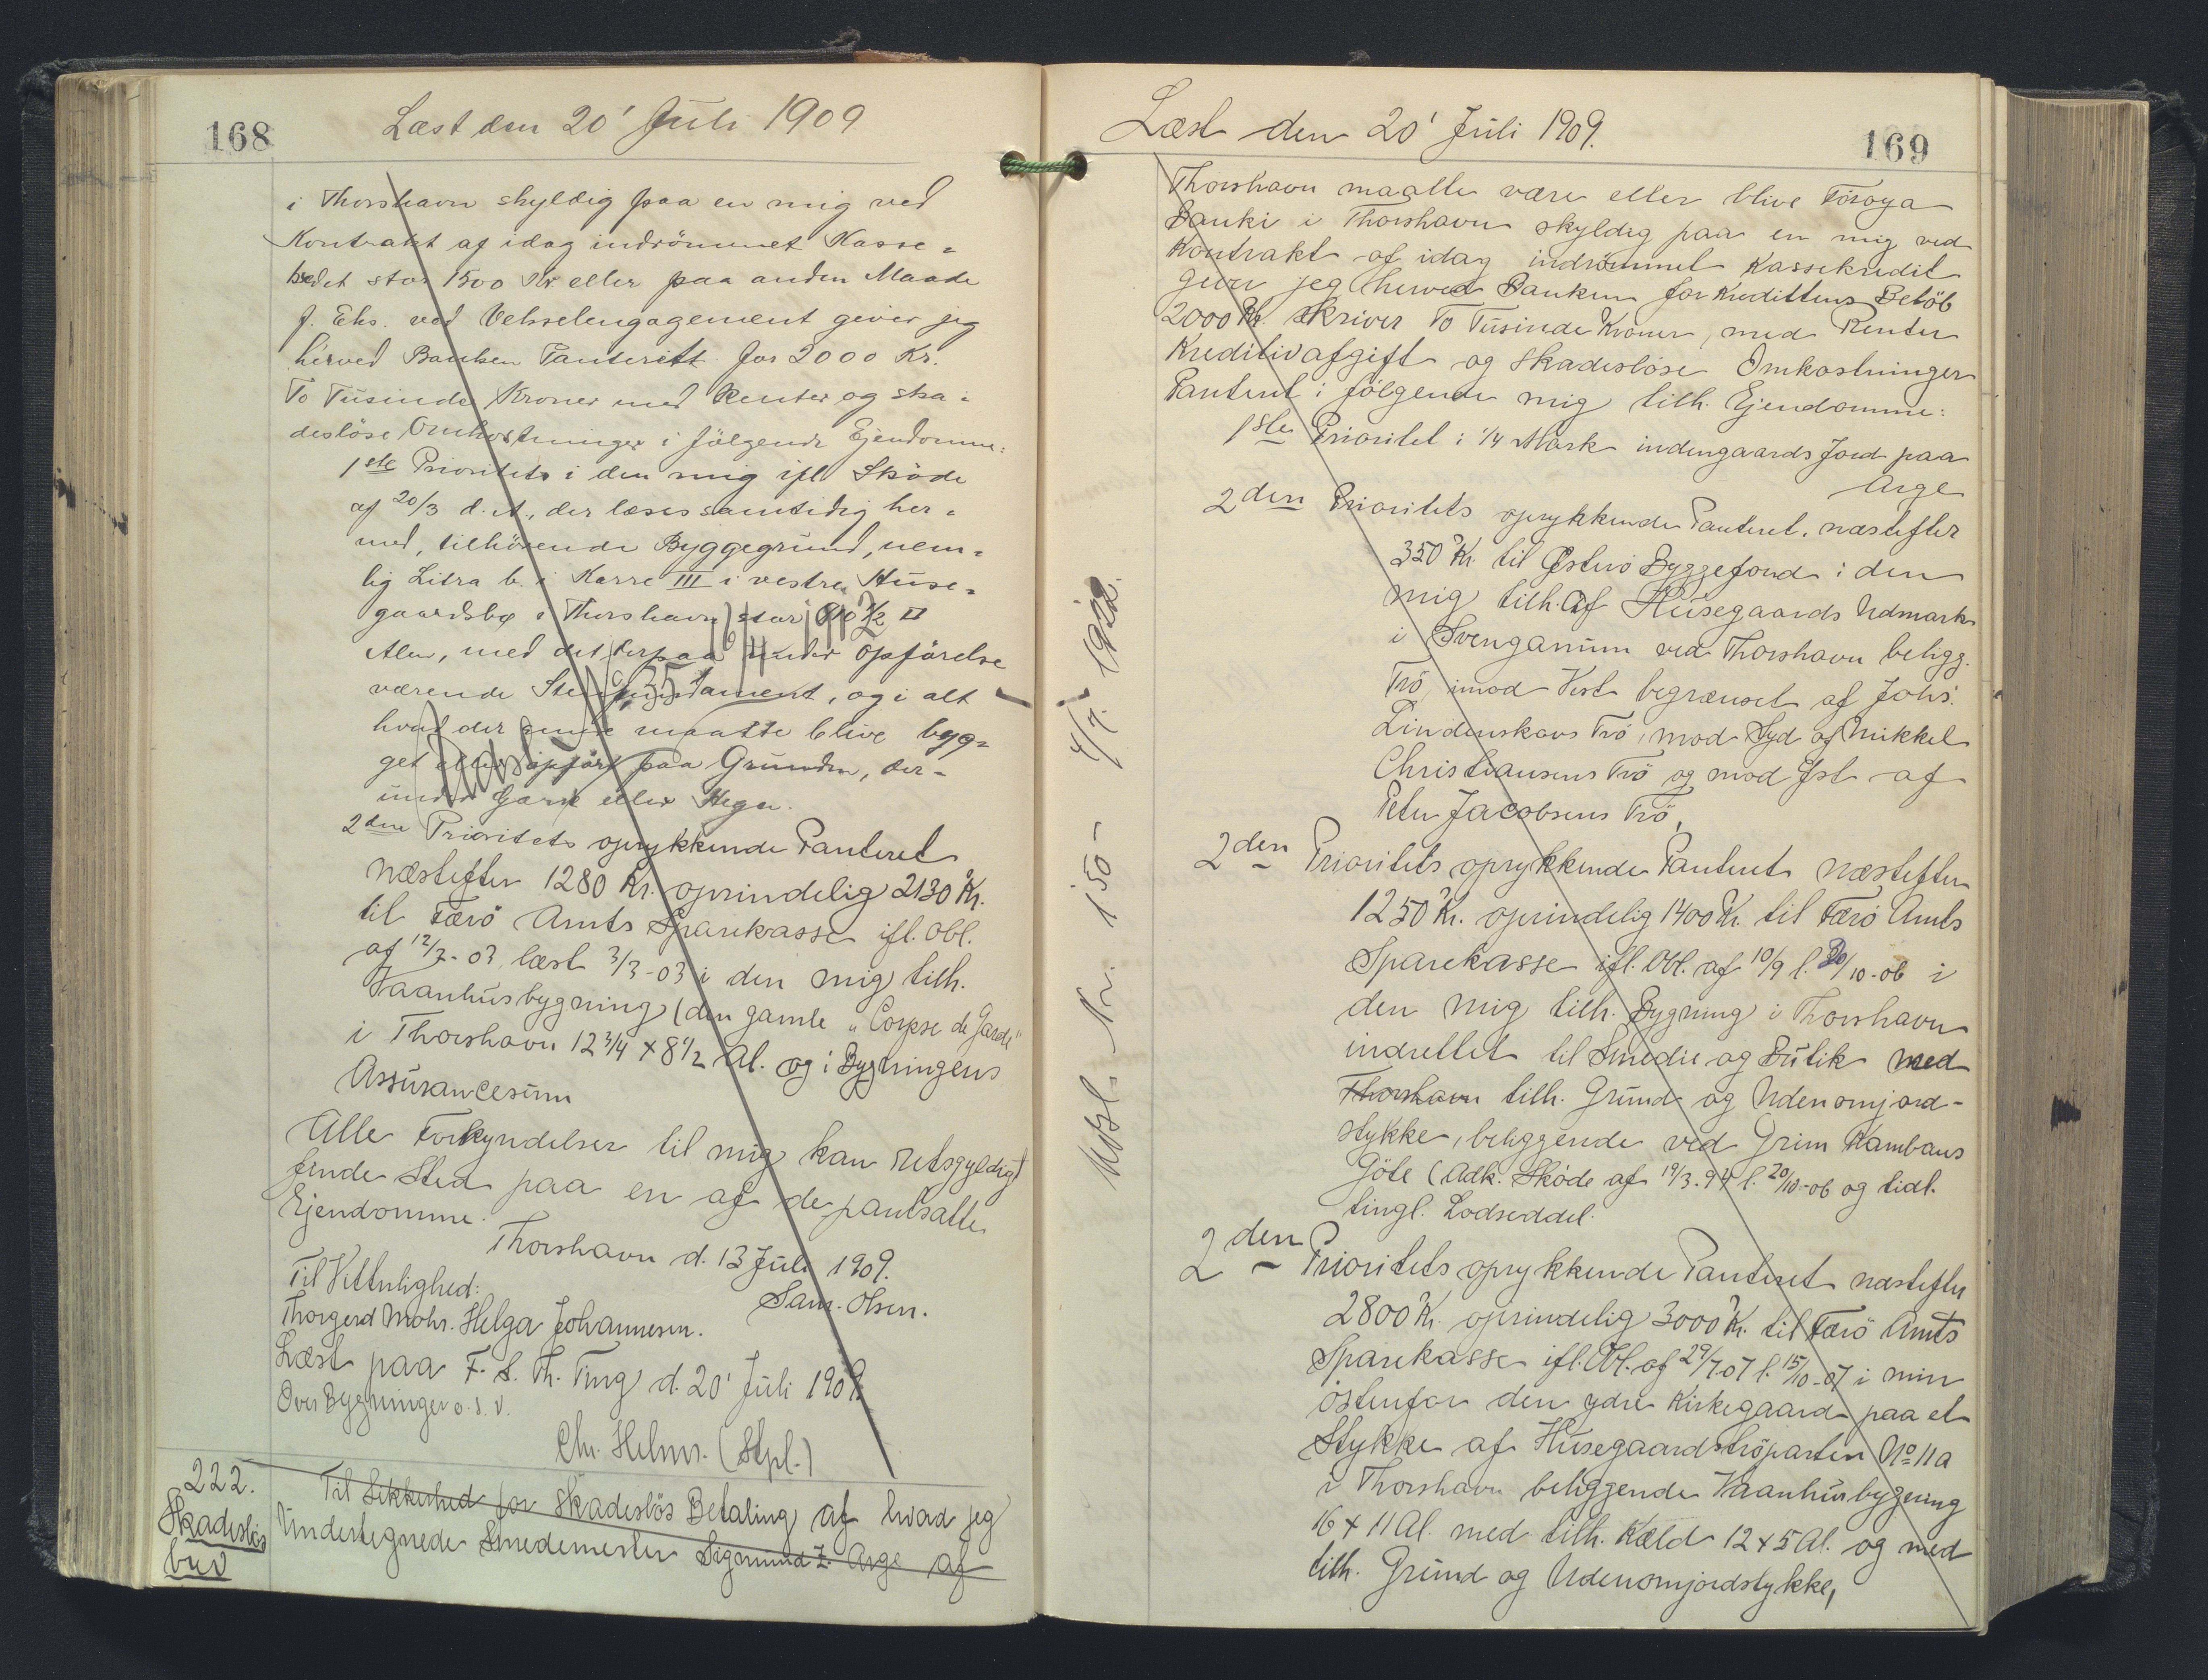 168
Læst den 20' Juli 1909
i Thorshavn skyldig paa en mig ved
Kontrakt af idag indrömmet Kasse=
kredit stor 1500 Kr eller paa anden Maade
f. Eks. ved Vekselengagement giver jeg
herved Banken Panteritt for 2000 Kr.
To Tusinde Kroner med Renter og ska=
deslöse Omkostninger i fölgende Ejendomme:
1ste Prioritets i den mig ifl Sköde
af 20/3 d. A., der læses samtidig her=
med, tilhörende Byggegrund, nem=
lig Litra b. i Karre III i vestre Huse=
gaardsbø i Thorshavn, stor 1/2 □
Alen, med det derpaa under opförelse
værende Stenfundament, og i alt
hvad der maatte blive byg=
get eller opfört paa Grunden, der=
under Gærde eller Hegn.
2den Prioritets oprykkende Panteret
næstefter 1280 Kr. oprindelig 2130 Kr.
til Færö Amts Sparekasse ifl. Obl.
af 12/2-03 læst 3/3-03 i den mig tilh.
Vaanhusbygning (den gamle "Corpse de Garde"
i Thorshavn 12 3/4 x 8 1/2 Al. og i Bygningens
Assurancesum
Alle Forkyndelser til mig kan retsgyldigt
finde Sted paa en af de pantsatte
Ejendomme.
Thorshavn d. 13 Juli 1909.
Til Vitterlighed:
Sam. Olsen.
Thorgerd Mohr. Helga Johannesen.
Læst paa F. S. Th. Ting d. 20' Juli 1909.
Over Bygninger o. s. v.
Chr. Helms. (Stpl.)
222.
Skadeslös
brev
Til Sikkerhed for Skadeslös Betaling af hvad jeg
Undertegnede Smedemester Sigmund Z. Arge af
169
Læst den 20' Juli 1909.
Thorshavn maatte være eller blive Föroya
Banki i Thorshavn skyldig paa en mig ved
Kontrakt af idag indrömmet Kassekredit
giver jeg herved Banken for Kredittens Belöb
2000 Kr. skriver To Tusinde Kroner, med Renter
Kreditivafgift og skadeslöse Omkostninger
Panteret i fölgende mig tilh. Ejendomme:
1ste Prioritet i 1/4 Mark indengaards Jord paa
Arge
2den Prioritets oprykkende Panteret, næstefter
350 Kr. til Østerö Byggefond i den
mig tilh. Af Husegaards Udmark
i Svenganum ved Thorshavn beligg.
Trö, imod Vest begrænset af Johs.
Lindenskovs Trö, mod Syd af Mikkel
Christiansens Trö og mod Øst af
Peter Jacobsens Trö,
2den Prioritets oprykkende Panteret næstefter
1250 Kr. oprindelig 1400 Kr. til Færö Amts
Sparekasse ifl. Obl. af 10/9 l. 20/10-06 i
den mig tilh. Bygning i Thorshavn
indrettet til Smedie og Butik med
Thorshavn tilh. Grund og Udenomjord-
stykke, beliggende ved Grim Kambans
Göte (Adk. Sköde af 19/3.94 l. 20/10-06 og tidl.
tingl. Lodseddel.
2den Prioritets oprykkende Panteret næstefter
2800 Kr. oprindelig 3000 Kr. til Færö Amts
Sparekasse ifl. Obl. af 29/7.07 l. 15/10-07 i min
östenfor den ydre Kirkegaard paa et
Stykke af Husegaardströparten No 11a
i Thorshavn beliggende Vaanhusbygning
16 x 11 Al. med tilh. Kæld 12 x 5 Al. og med
tilh. Grund og Udenomjordstykke,